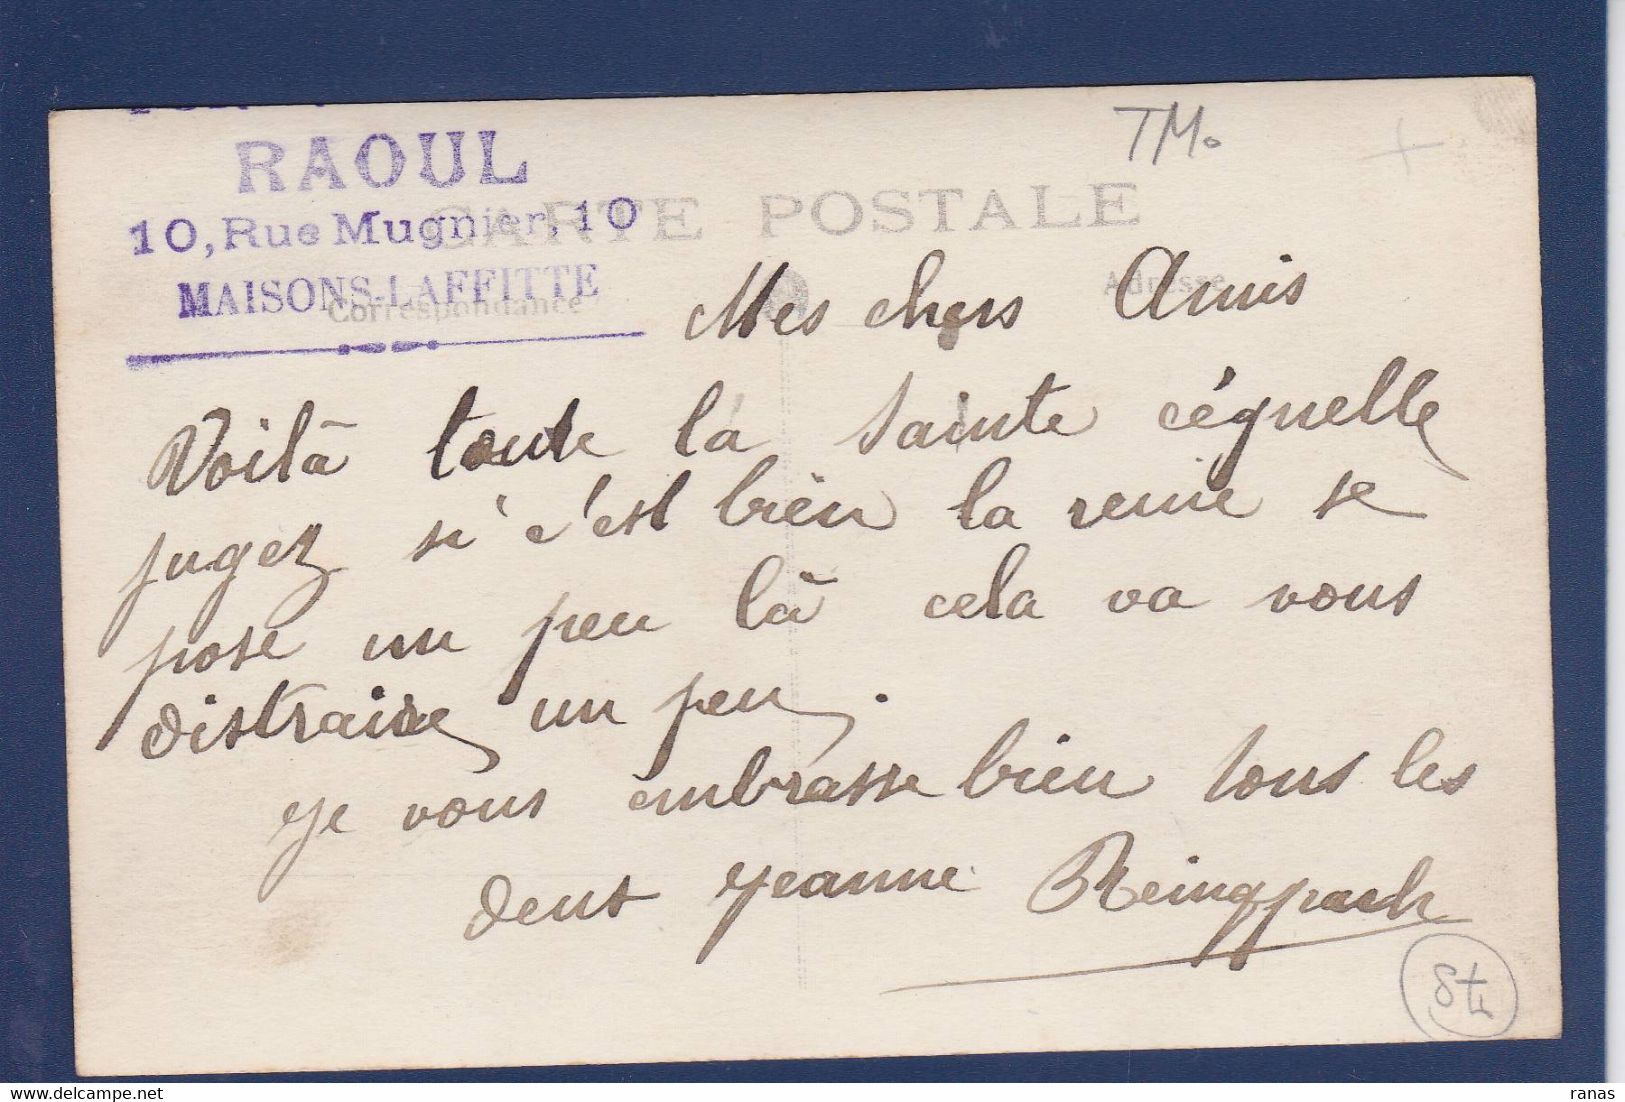 RAOUL
10, Rue Mugnier, 10
MAISONS-LAFFITTE
CARTE POSTALE
Correspondance
Adresse
TM.
Mes chers Amis
Voilà toute là sainte céquelle
jugez si c'est bien la reine se
pose un peu là cela va vous
distraire un peu.
je vous embrasse bien tous les
deux Jeanne Reingpach
ranas